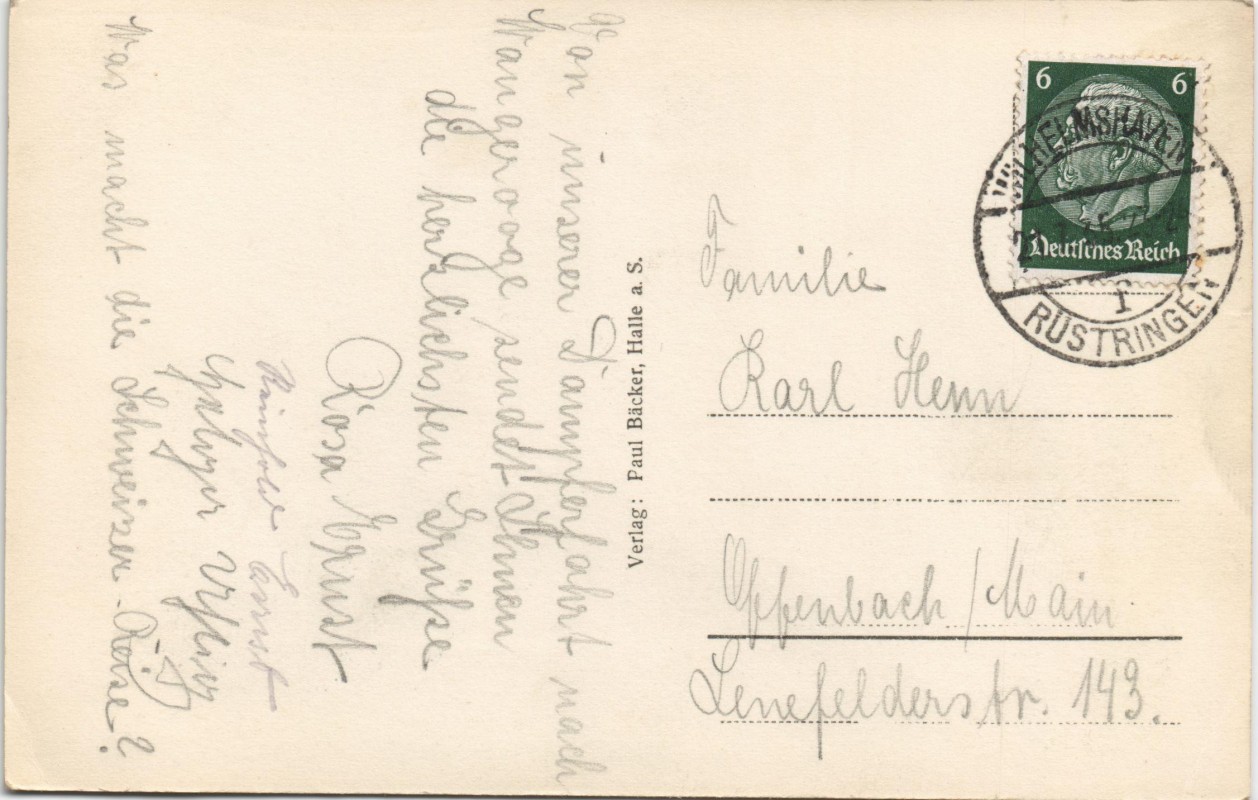 Von unserer Dampferfahrt nach
Wangerooge sendet Ihnen
die herzlichsten Grüße
Rosa Ernst
Ernst
Was macht die Schweizer-Reise?
Verlag: Paul Bäcker, Halle a. S.
6 6
Deutsches Reich
WILHELMSHAVEN
RÜSTRINGEN
f
Familie
Karl Henn
Offenbach / Main
Senefelderstr. 143.